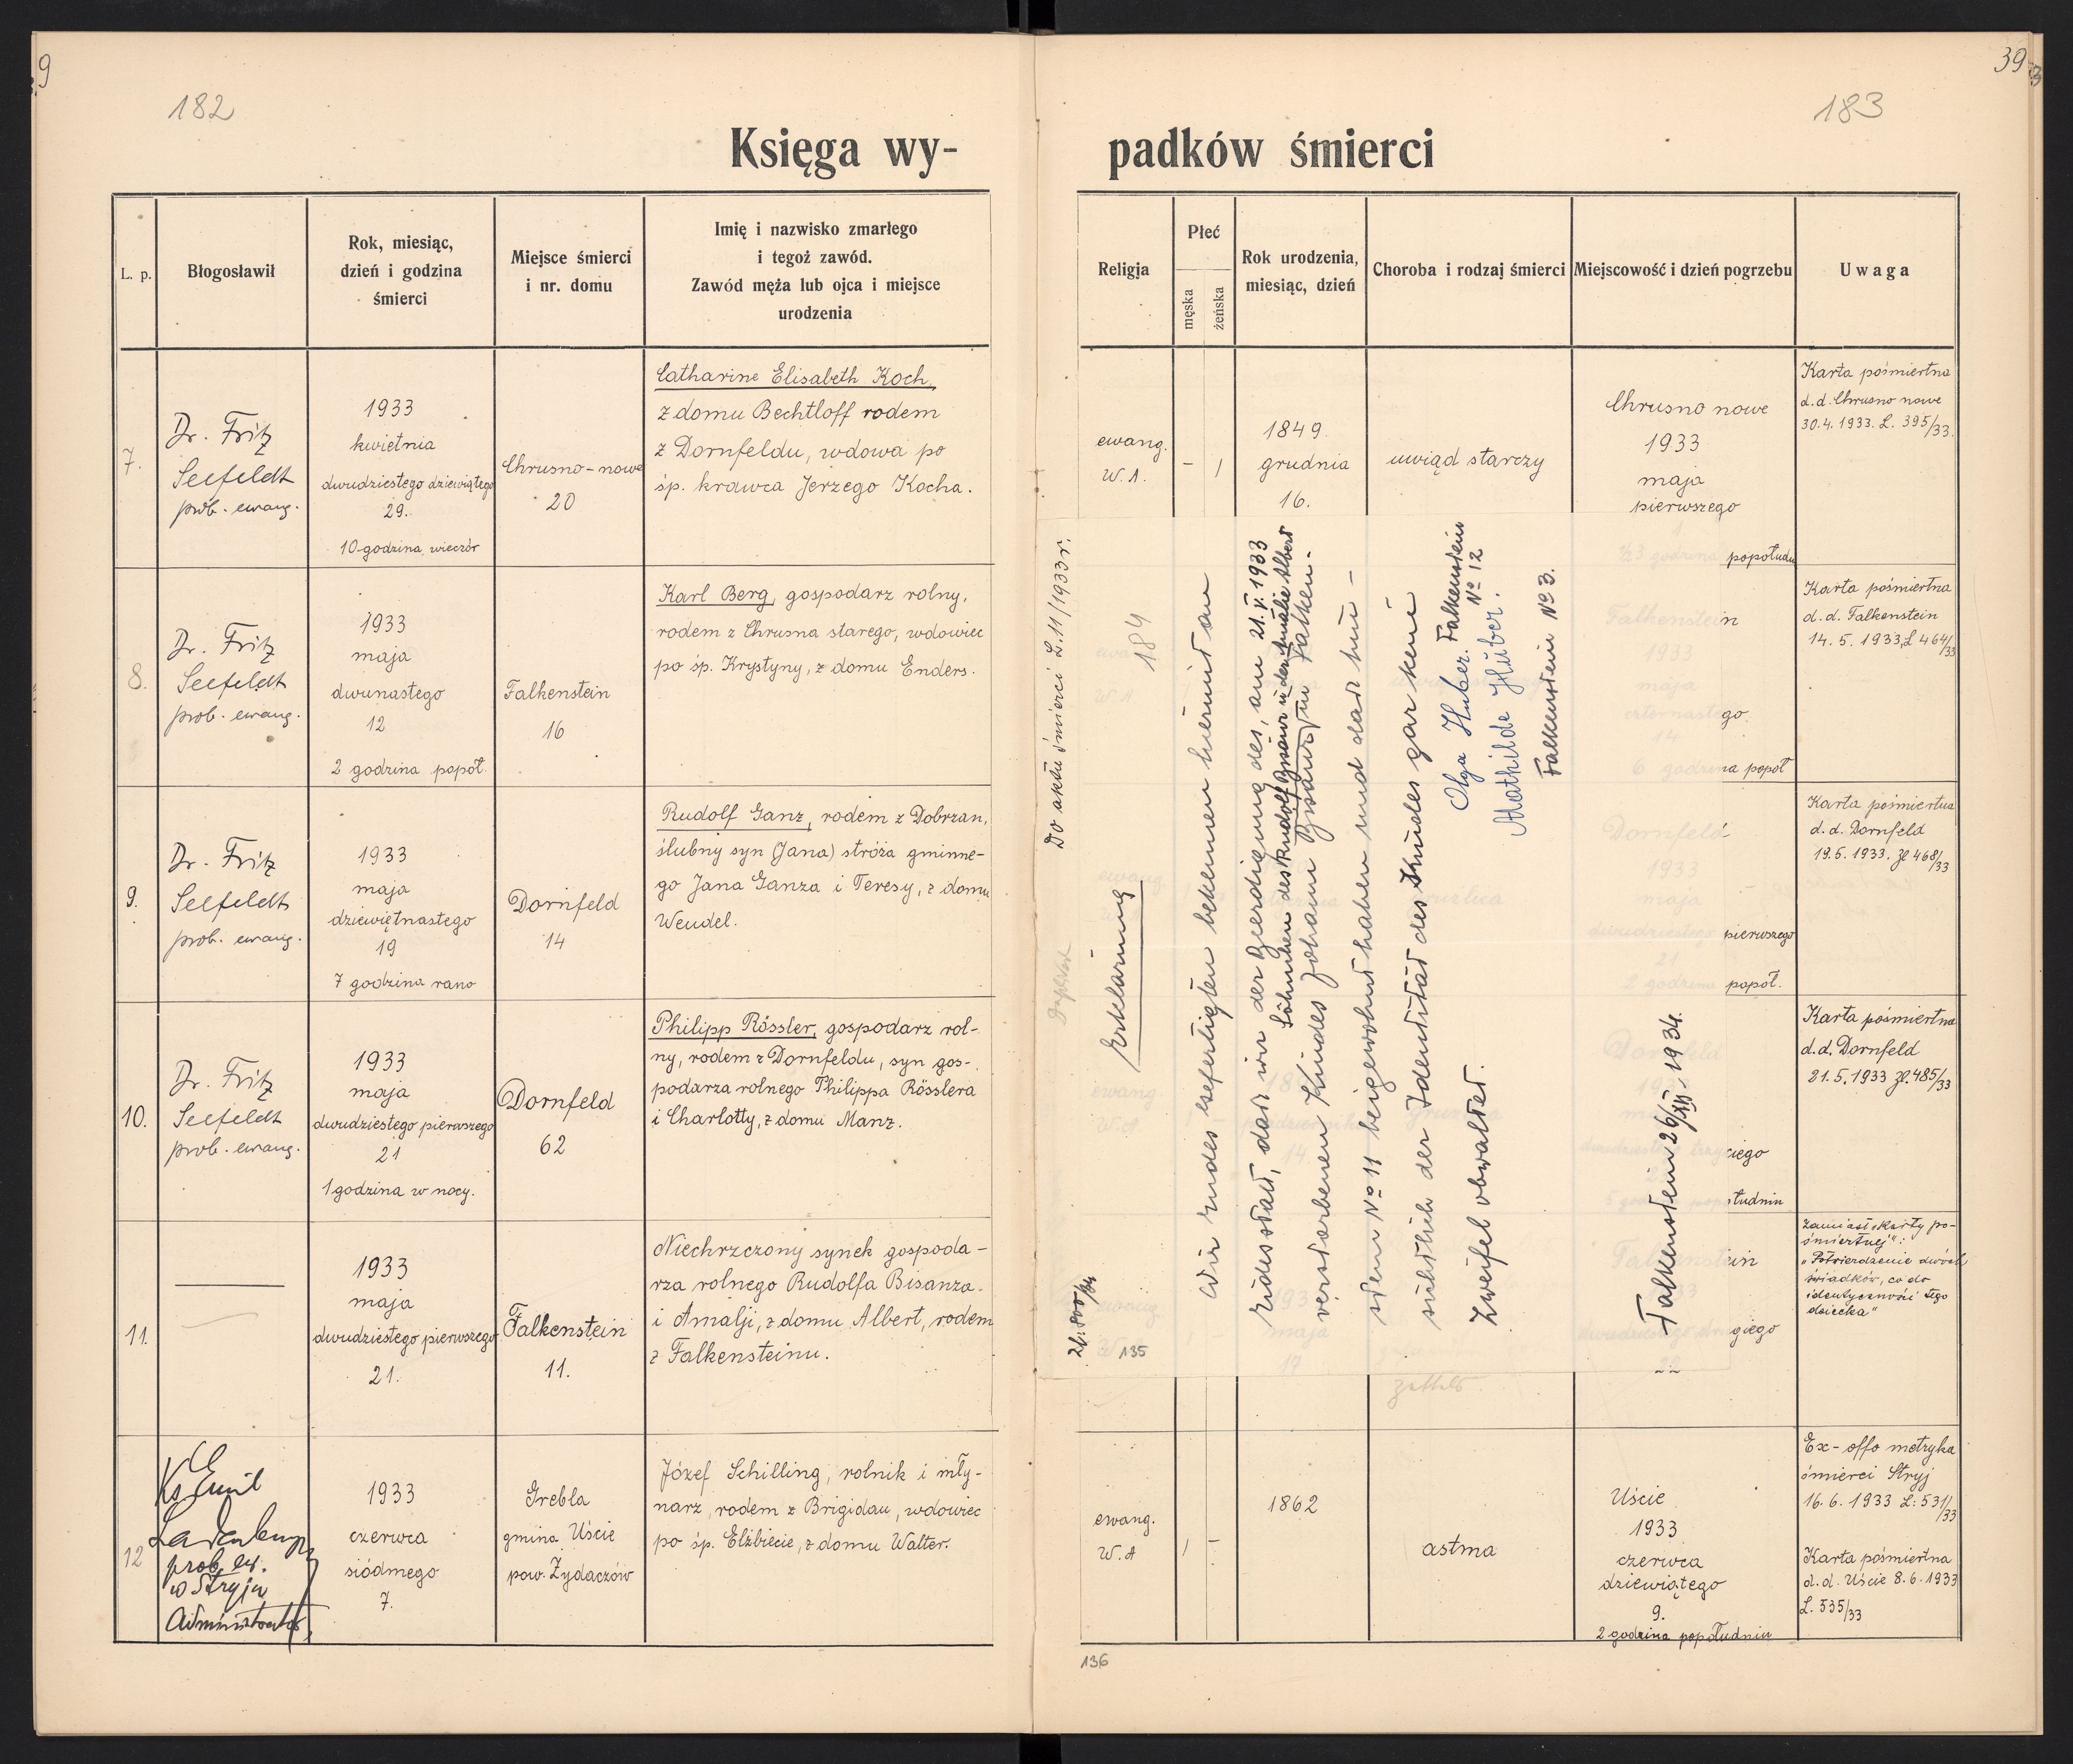 9
182
Księga wy-
L. p.
Błogosławił
Rok, miesiąc,
dzień i godzina
śmierci
Miejsce śmierci
i nr. domu
Imię i nazwisko zmarłego
i tegoż zawód.
Zawód męża lub ojca i miejsce
urodzenia
7.
Dr. Fritz
Seefeldt
prob. ewang.
1933
kwietnia
dwudziestego dziewiątego
29.
10 godzina wieczór
Chrusno-nowe
20
Catharine Elisabeth Koch,
z domu Bechtloff rodem
z Dornfeldu, wdowa po
śp. krawca Jerzego Kocha.
8.
Dr. Fritz
Seefeldt
prob. ewang.
1933
maja
dwunastego
12
2 godzina popoł.
Falkenstein
16
Karl Berg, gospodarz rolny,
rodem z Chrusna starego, wdowiec
po śp. Krystyny, z domu Enders.
9.
Dr. Fritz
Seefeldt
prob. ewang.
1933
maja
dziewiętnastego
19
7 godzina rano
Dornfeld
14
Rudolf Ganz, rodem z Dobrzan,
ślubny syn (Jana) stróża gminne-
go Jana Ganza i Teresy, z domu
Wendel.
10.
Dr. Fritz
Seefeldt
prob. ewang.
1933
maja
dwudziestego pierwszego
21
1 godzina w nocy.
Dornfeld
62
Philipp Rössler, gospodarz rol-
ny, rodem z Dornfeldu, syn gos-
podarza rolnego Philippa Rösslera
i Charlotty, z domu Manz.
11.
1933
maja
dwudziestego pierwszego
21.
Falkenstein
11.
Niechrzczony synek gospoda-
rza rolnego Rudolfa Bisanza
i Amalji, z domu Albert, rodem
z Falkensteinu.
12
Ks Emil
Ladenberger
prob. ew.
w Stryju
Administrator
1933
czerwca
siódmego
7.
Grebla
gmina Uście
pow. Żydaczów
Józef Schilling, rolnik i mły-
narz, rodem z Brigidau, wdowiec
po śp. Elżbiecie, z domu Walter.
39
183
padków śmierci
Religja
Płeć
męska
żeńska
Rok urodzenia,
miesiąc, dzień
Choroba i rodzaj śmierci
Miejscowość i dzień pogrzebu
Uwaga
ewang.
W. A.
- 1
1849
grudnia
16.
uwiąd starczy
Chrusno nowe
1933
maja
pierwszego
½3 godzina popołudn
Karta pośmiertna
d.d. Chrusno nowe
30.4.1933. L. 395/33.
Falkenstein
1933
maja
czternastego
14
6 godzina popoł
Karta pośmiertna
d. d. Falkenstein
14. 5. 1933, L 464/33
Dornfeld
1933
maja
dwudziestego pierwszego
21
2 godzina popoł.
Karta pośmiertna
d. d. Dornfeld
19.5.1933. Zl 468/33
Karta pośmiertna
d.d. Dornfeld
21.5.1933 Zl. 485/33
Zamiast „karty po-
śmiertnej":
„Potwierdzenie dwóch
świadków, co do
identyczności tego
dziecka"
Do aktu śmierci L.11/1933 r.
184
Duplikat
Erklärung
Wir Endes Gefertigten bekennen hiermit an
Eides statt, daß wir der Beerdigung des, am 21.V.1933
Söhnchen des Rudolf Bisanz u der Amalie Albert
verstorbenen Kindes Johann Bisanz, in Falken-
stein No 11 beigewohnt haben und daß hin-
sichtlich der Identität des Kindes gar kein
Zweifel obwaltet.
Olga Huber. Falkenstein
No 12
Mathilde Huber.
Falkenstein No 3.
Falkenstein 26/XII. 1934.
135
ewang.
W. A
1 -
1862
astma
Uście
1933
czerwca
dziewiątego
9.
2 godzina popołudniu
Ex-offo metryka
śmierci Stryj
16. 6. 1933 L: 531/33
Karta pośmiertna
d. d. Uście 8. 6. 1933
L. 535/33
136